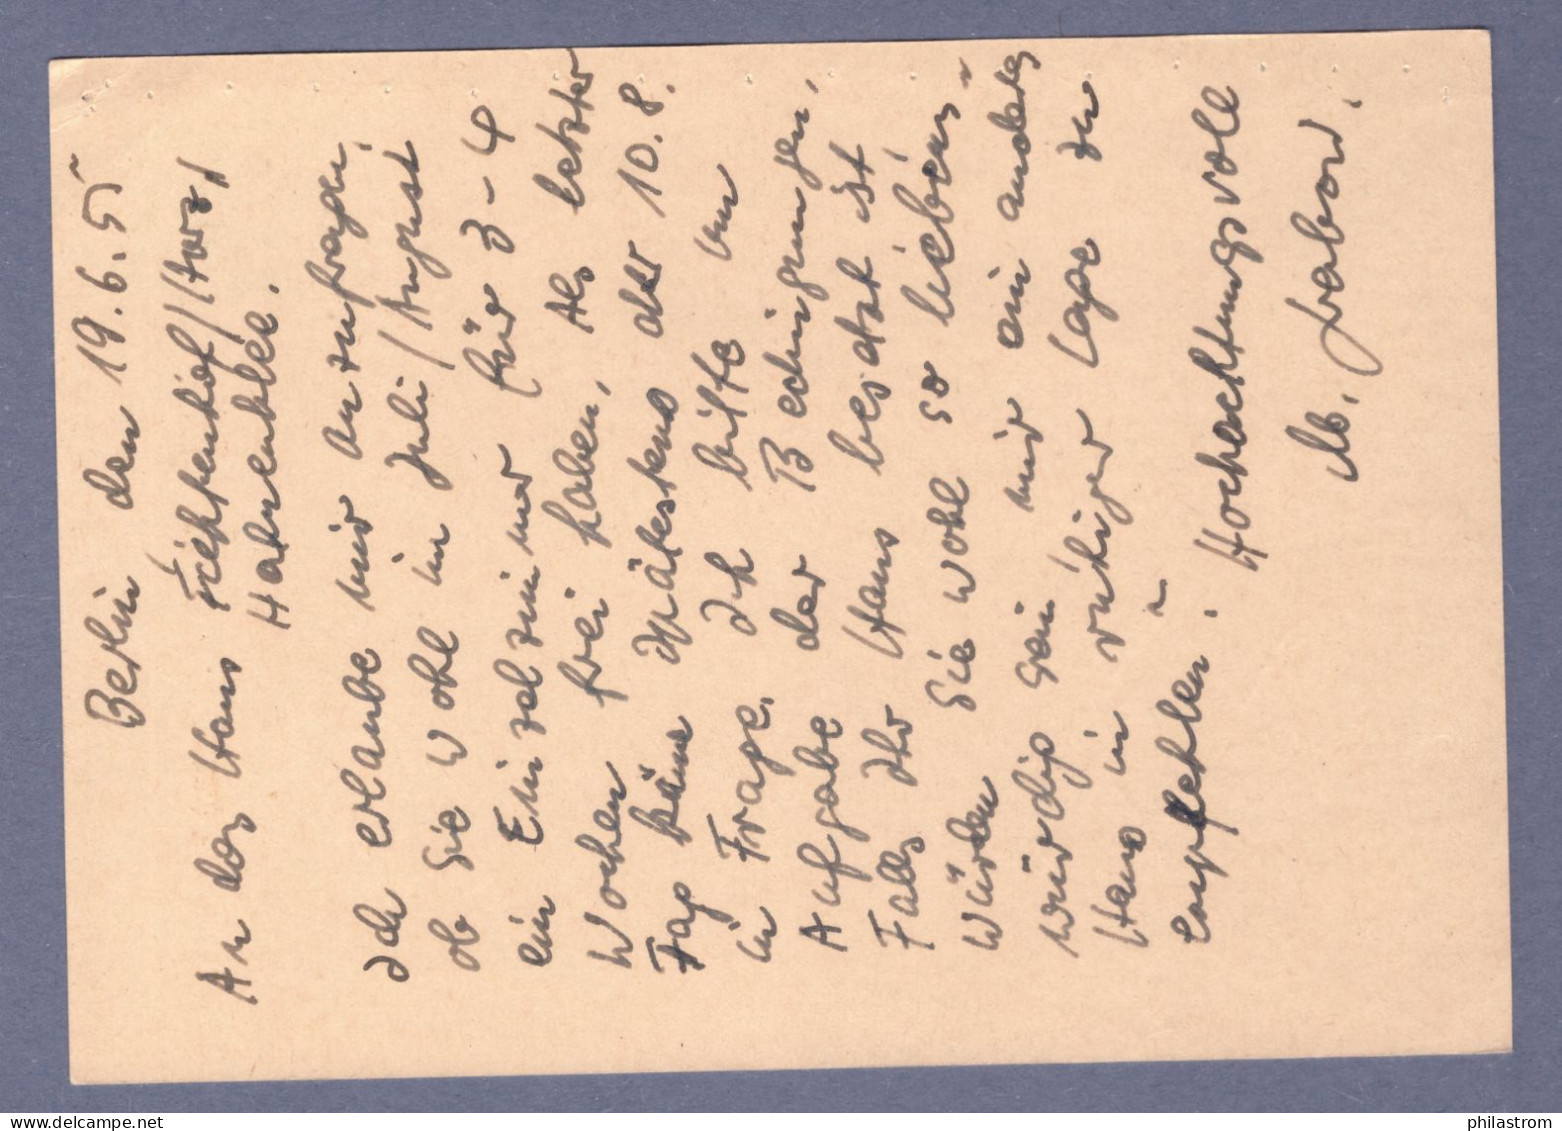 Berlin den 19.6.55
An das Haus Fichtenhof/Harz,
Hahnenklee.
Ich erlaube mir anzufragen,
ob Sie wohl im Juli/August
ein Einzelzimmer für 3–4
Wochen frei haben, Als letzter
Tag käme spätestens der 10.8.
in Frage. Ich bitte um
Aufgabe der Bedingungen.
Falls Ihr Haus besetzt ist
würden Sie wohl so liebens-
würdig sein mir ein anderes
Haus in ruhiger Lage zu
empfehlen. Hochachtungsvoll
M.
philastrom.com